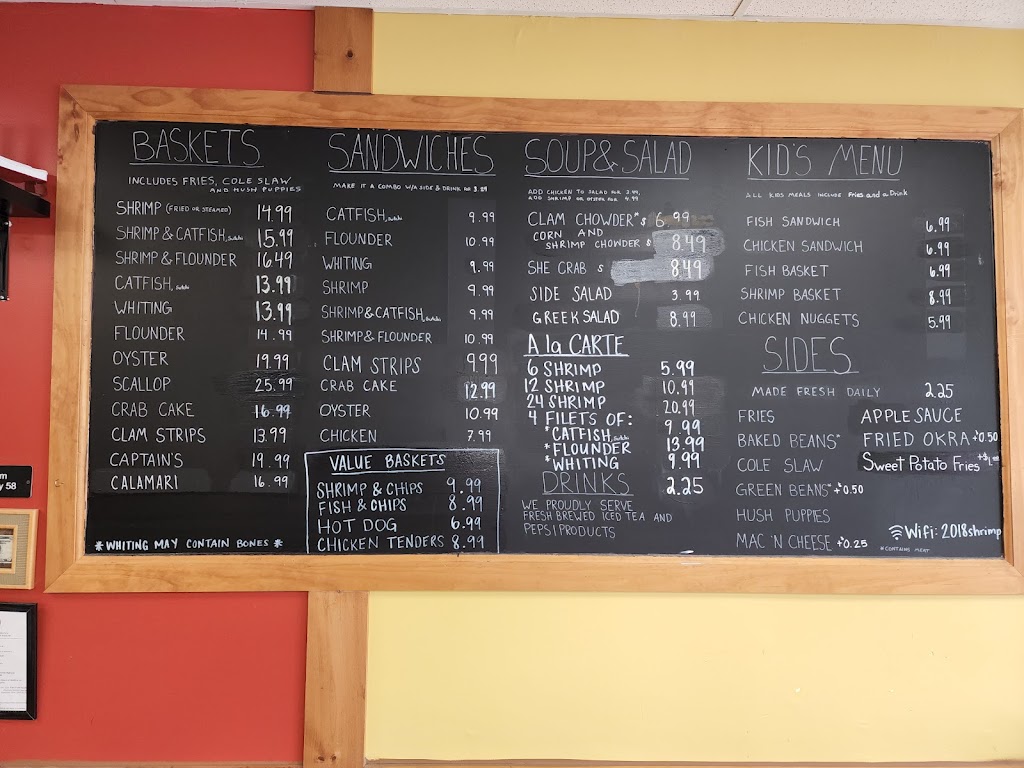 BASKETS
INCLUDES FRIES, COLE SLAW
AND HUSH PUPPIES
SHRIMP (FRIED OR STEAMED) 14.99
SHRIMP & CATFISH, 15.99
SHRIMP & FLOUNDER 16.49
CATFISH, 13.99
WHITING 13.99
FLOUNDER 14.99
OYSTER 19.99
SCALLOP 25.99
CRAB CAKE 16.99
CLAM STRIPS 13.99
CAPTAIN'S 19.99
CALAMARI 16.99
* WHITING MAY CONTAIN BONES *
SANDWICHES
MAKE IT A COMBO W/A SIDE & DRINK FOR 3.89
CATFISH, 9.99
FLOUNDER 10.99
WHITING 9.99
SHRIMP 9.99
SHRIMP & CATFISH, 9.99
SHRIMP & FLOUNDER 10.99
CLAM STRIPS 9.99
CRAB CAKE 12.99
OYSTER 10.99
CHICKEN 7.99
VALUE BASKETS
SHRIMP & CHIPS 9.99
FISH & CHIPS 8.99
HOT DOG 6.99
CHICKEN TENDERS 8.99
SOUP & SALAD
ADD CHICKEN TO SALAD FOR 3.99,
ADD SHRIMP OR OYSTER FOR 4.99
CLAM CHOWDER* $ 6.99
CORN AND
SHRIMP CHOWDER $ 8.49
SHE CRAB $ 8.49
SIDE SALAD 3.99
GREEK SALAD 8.99
A la CARTE
6 SHRIMP 5.99
12 SHRIMP 10.99
24 SHRIMP 20.99
4 FILETS OF:
*CATFISH, 9.99
*FLOUNDER 13.99
*WHITING 9.99
DRINKS 2.25
WE PROUDLY SERVE
FRESH BREWED ICED TEA AND
PEPSI PRODUCTS
KID'S MENU
ALL KIDS MEALS INCLUDE Fries and a Drink
FISH SANDWICH 6.99
CHICKEN SANDWICH 6.99
FISH BASKET 6.99
SHRIMP BASKET 8.99
CHICKEN NUGGETS 5.99
SIDES
MADE FRESH DAILY 2.25
FRIES
BAKED BEANS*
COLE SLAW
GREEN BEANS* +0.50
HUSH PUPPIES
MAC 'N CHEESE +0.25
APPLE SAUCE
FRIED OKRA +0.50
Sweet Potato Fries
Wifi: 2018shrimp
* CONTAINS MEAT